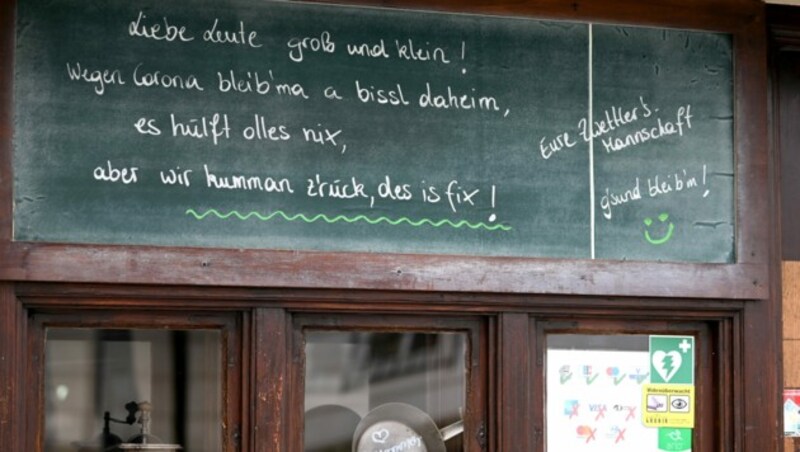 Liebe Leute groß und klein!
Wegen Corona bleib'ma a bissl daheim,
es hülft olles nix,
aber wir kumman z'rück, des is fix!
Eure Zwettler's-
Mannschaft
g'sund bleib'm!
VISA